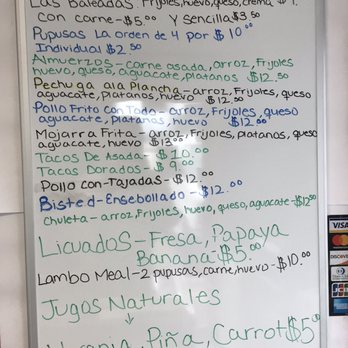 Las Baleadas Frijoles, huevo, queso, crema
con carne-$5.00 y sencilla $3.50
Pupusas La orden de 4 por $10.00
Individual $2.50
Almuerzos-carne asada, arroz, Frijoles
huevo, queso, aguacate, platanos $12.50
Pechuga ala Plancha-arroz, Frijoles, queso
aguacate, platanos, huevo $12.00
Pollo Frito con Todo-arroz, Frijoles, queso
aguacate, platanos, huevo $12.00
Mojarra Frita-arroz, Frijoles, platanos, queso
aguacate, huevo $13.00
Tacos De Asada-$10.00
Tacos Dorados-$9.00
Pollo con-Tajadas-$12.00
Bisted-Ensebollado-$12.00
Chuleta-arroz, Frijoles, huevo, queso, aguacate-$12.50
Licuados-Fresa, Papaya
Banana $5.00
Lambo Meal-2 pupusas, carne, huevo-$10.00
Jugos Naturales
Piña, Carrot $5
VISA
DISCOVER